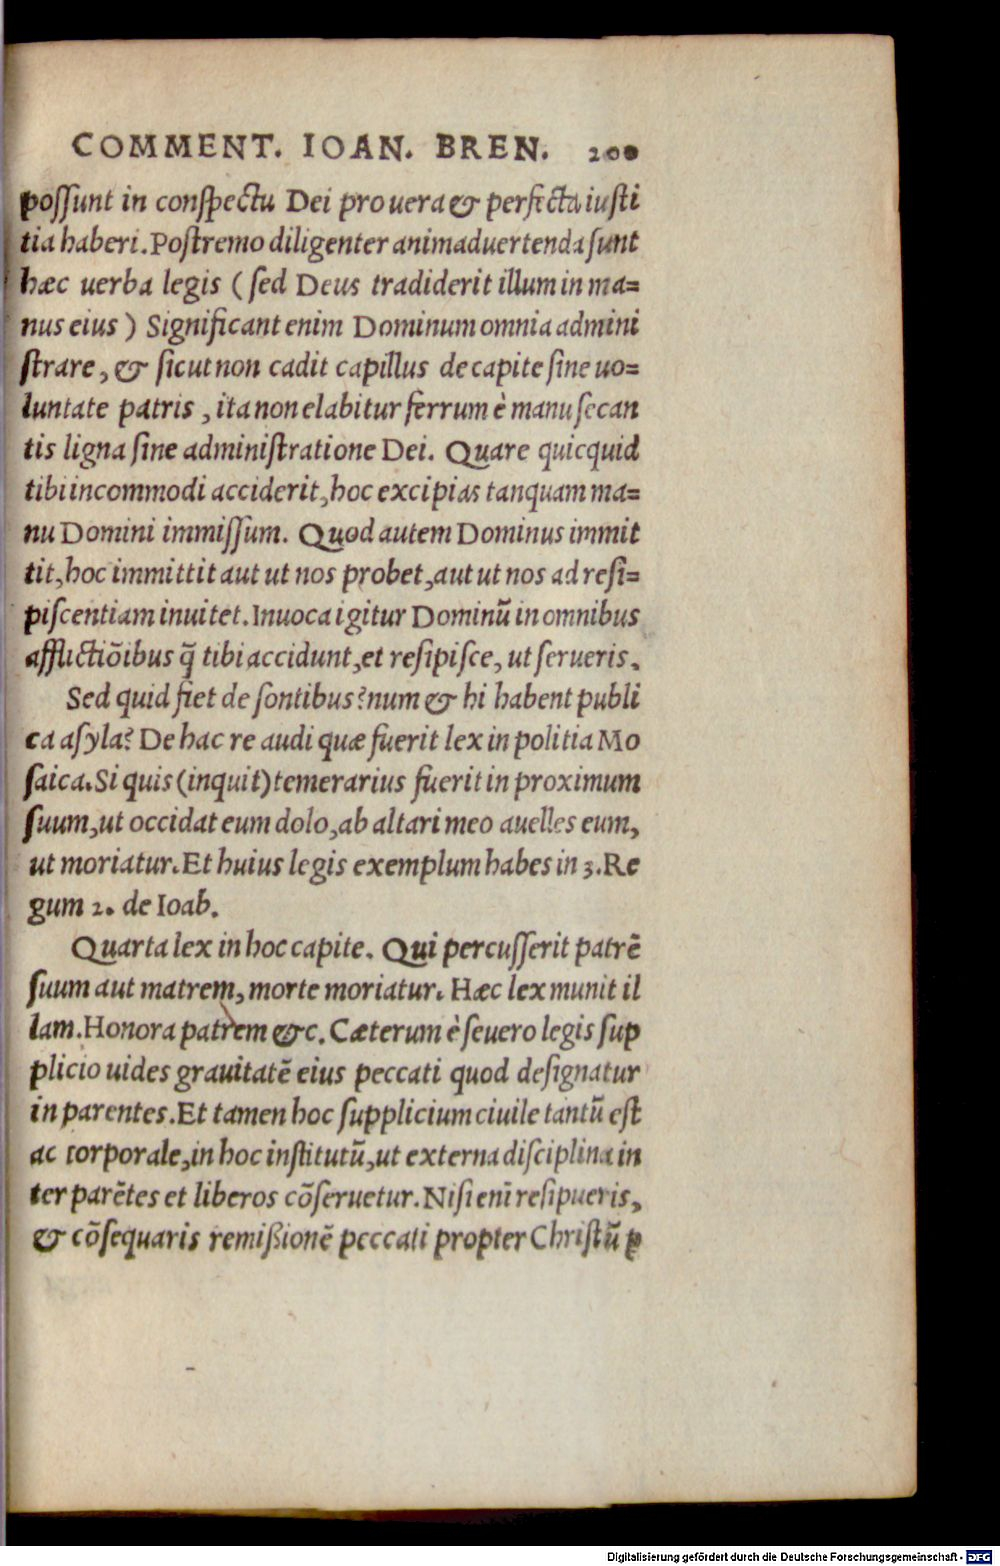 COMMENT. IOAN. BREN. 200
possunt in conspectu Dei pro uera & perfecta iusti
tia haberi. Postremo diligenter animaduertenda sunt
hæc uerba legis (sed Deus tradiderit illum in ma=
nus eius) Significant enim Dominum omnia admini
strare, & sicut non cadit capillus de capite sine uo=
luntate patris, ita non elabitur ferrum è manu secan
tis ligna sine administratione Dei. Quare quicquid
tibi incommodi acciderit, hoc excipias tanquam ma=
nu Domini immissum. Quod autem Dominus immit
tit, hoc immittit aut ut nos probet, aut ut nos ad resi=
piscentiam inuitet. Inuoca igitur Dominū in omnibus
afflictiōibus q̃ tibi accidunt, et resipisce, ut serueris.
Sed quid fiet de sontibus? num & hi habent publi
ca asyla? De hac re audi quæ fuerit lex in politia Mo
saica. Si quis (inquit) temerarius fuerit in proximum
suum, ut occidat eum dolo, ab altari meo auelles eum,
ut moriatur. Et huius legis exemplum habes in 3. Re
gum 2. de Ioab.
Quarta lex in hoc capite. Qui percusserit patrē
suum aut matrem, morte moriatur. Hæc lex munit il
lam. Honora patrem &c. Cæterum è seuero legis sup
plicio uides grauitatē eius peccati quod designatur
in parentes. Et tamen hoc supplicium ciuile tantū est
ac corporale, in hoc institutū, ut externa disciplina in
ter parētes et liberos cōseruetur. Nisi enī resipueris,
& cōsequaris remißionē peccati propter Christū ꝑ
Digitalisierung gefördert durch die Deutsche Forschungsgemeinschaft - DFG